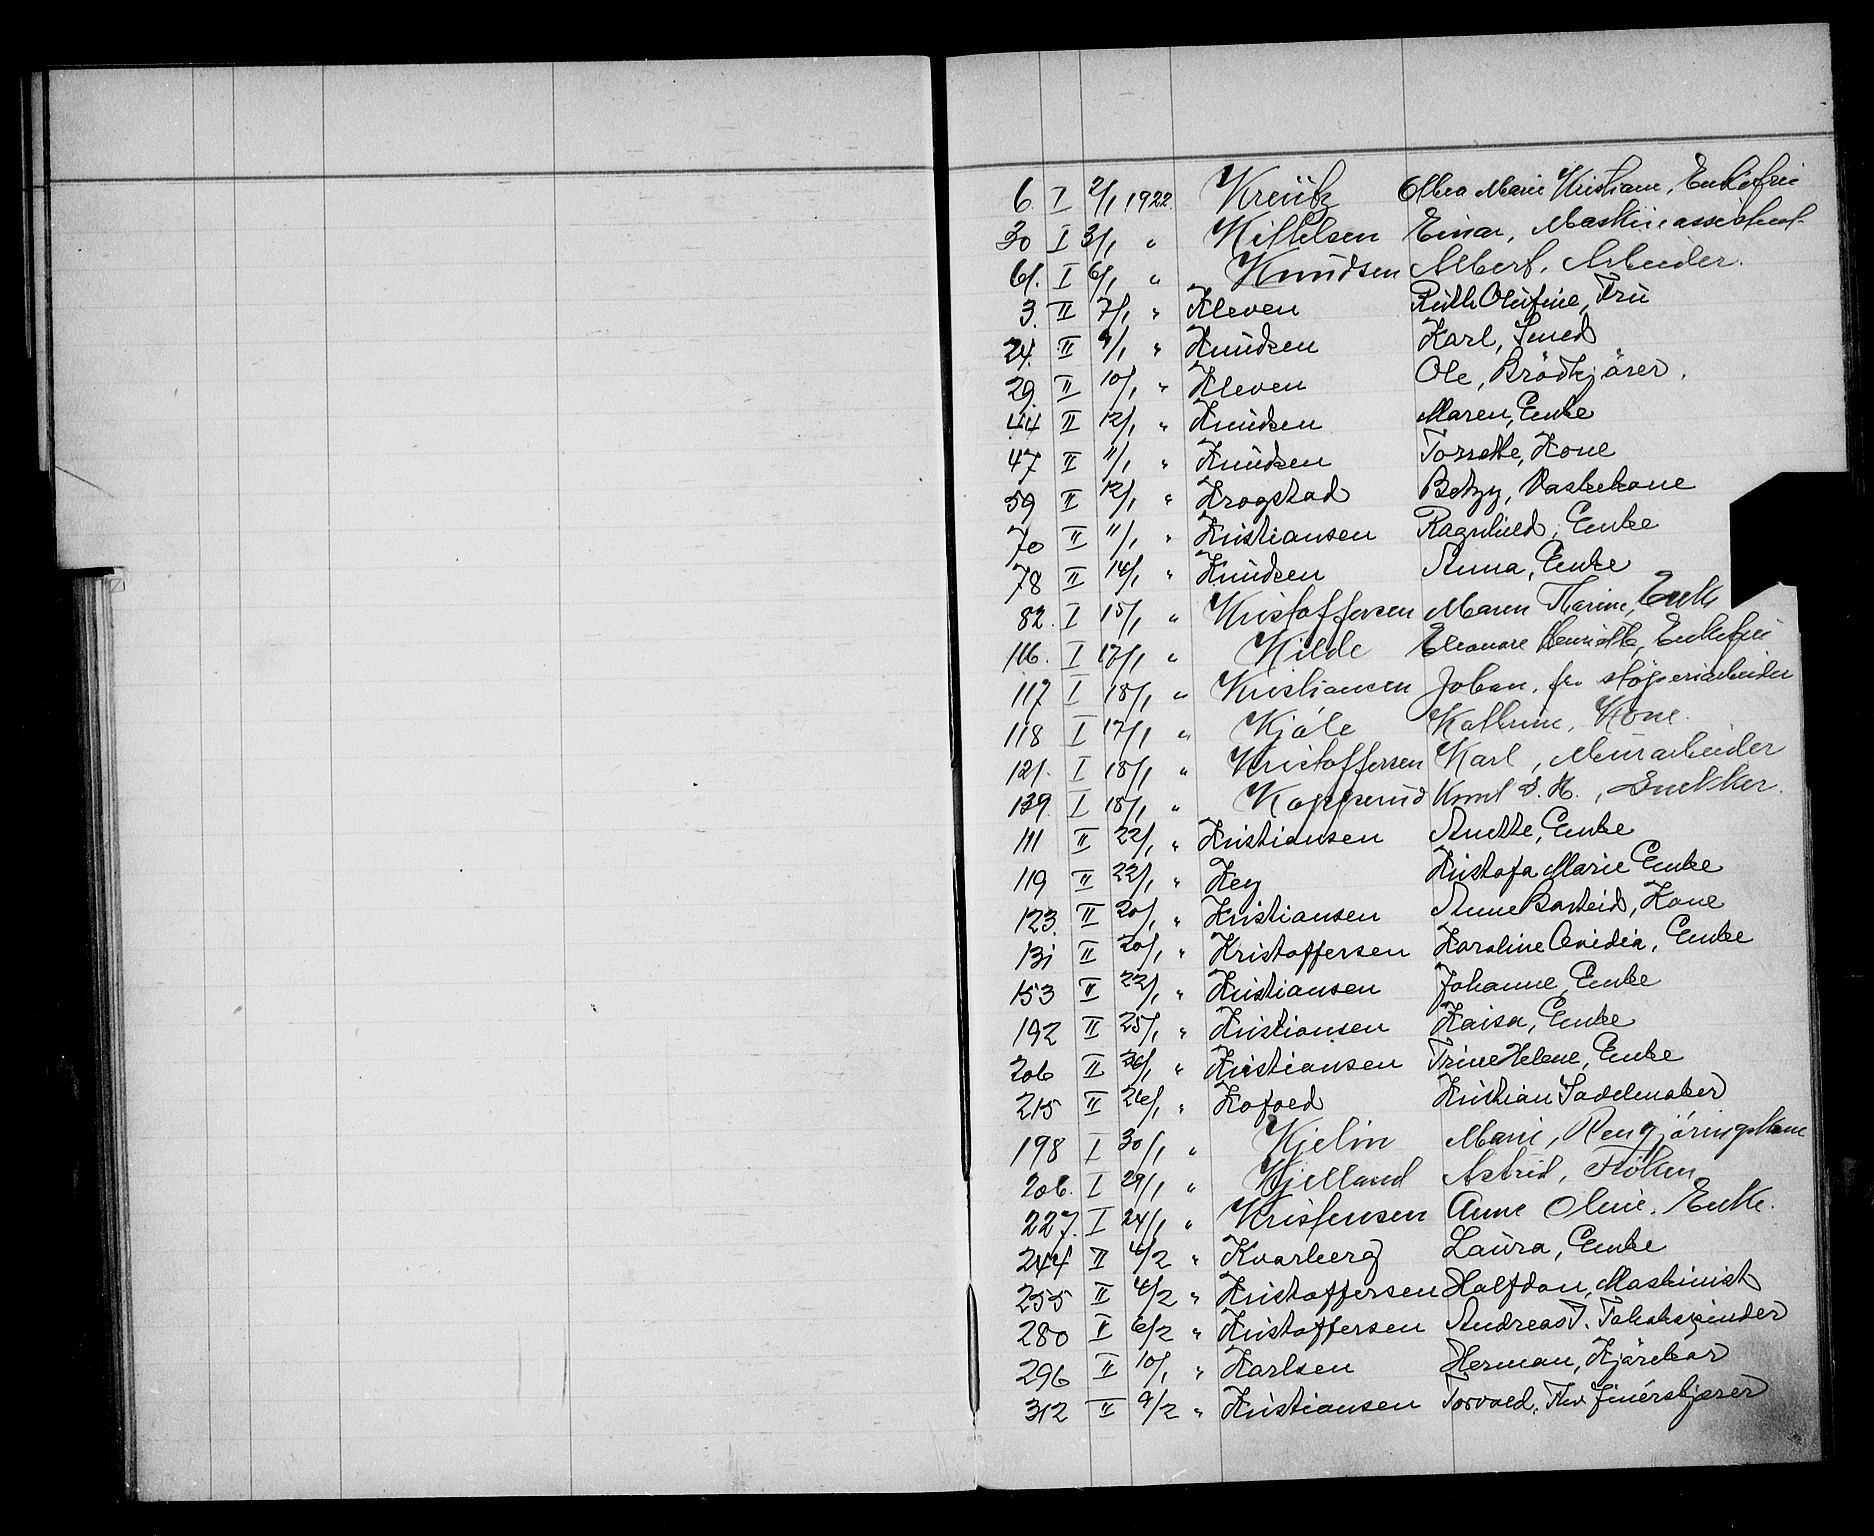 6. I 2/1 1922. Kreütz Marie Kristiane, Enkefrü
30 I 3/1 " Kittelsen Einar, Maskinassistent
61. I 6/1 " Knüdsen Albert, Arbeider.
3. II 7/1 " Kleven Rüth Olüfine, Frü
24. II 9/1 " Knüdsen Karl, Smed
29. II 10/1 " Kleven Ole, Brödkjörer.
44 II 12/1 " Knüdsen Maren, Enke
47 II 11/1 " Knüdsen Torsette, Kone
59 II 12/1 " Krogstad Betzy, Vaskekone
70 II 11/1 " Kristiansen Ragnhild, Enke
78 II 14/1 " Knüdsen Anna, Enke
82. I 15/1 " Kristoffersen Maren Karine, Enke
116. I 17/1 " Kilde Eleonore Henriette, Enkefrü
117 I 18/1 " Kristiansen Johan, fv. støperiarbeider
118 I 17/1 " Kjóle Kathrine, Kone.
121. I 18/1 " Kristoffersen Karl, Mürarbeider
139. I 18/1 " Kopperud Knut S. H., Snekker.
111 II 22/1 " Kristiansen Anette, Enke
119 II 22/1 " Key Kristofa Marie Enke
123. II 20/1 " Kristiansen Anne Kone
131 II 20/1 " Kristoffersen Karoline Enke
153 II 22/1 " Kristiansen Johanne, Enke
192 II 25/1 " Kristiansen Kaisa, Enke
206 II 26/1 " Kristiansen Trine Helene, Enke
215 II 26/1 " Kofoed Kristian Sadelmaker
198 I 30/1 " Kjelin Marie, Rengjöringskone
206. I 29/1 " Kjelland Astrid, Fröken
227. I 24/1 " Kristensen Anne Oline. Enke.
244 II 4/2 " Kvarberg Laüra, Enke
255 II 4/2 " Kristoffersen Halfdan, Maskinist
280 II 6/2 " Kristoffersen Andreas T. Tobakspinder
296 II 10/1 " Karlsen Herman, Kjörekar
312 II 9/2 " Kristiansen Torvald,